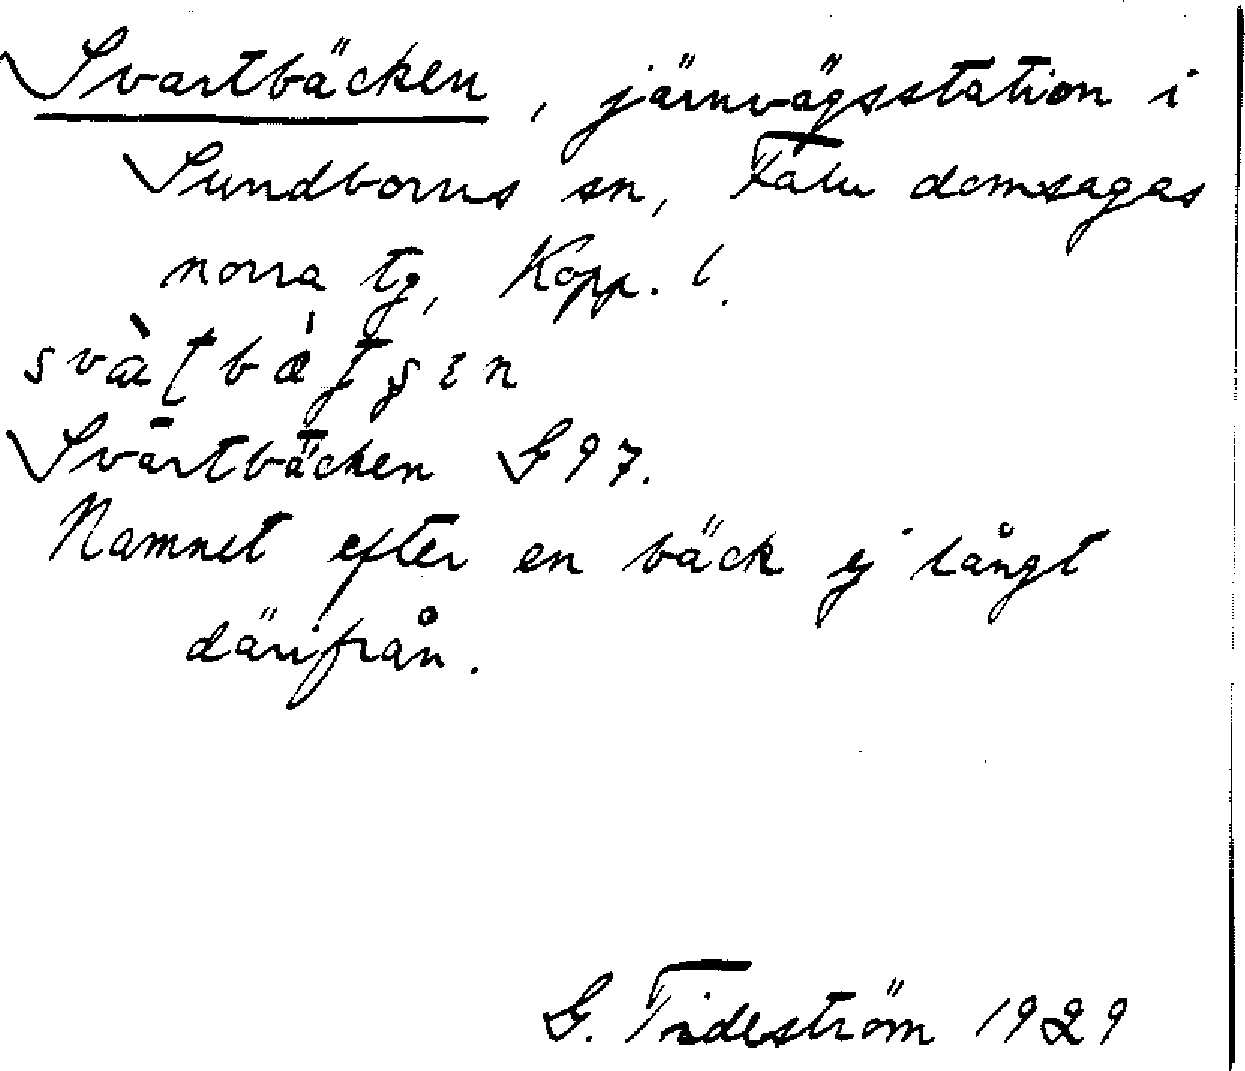 Svartbäcken, järnvägsstation i
Sundborns sn, Falu domsagas
norra tg, Kopp. l.
Svartbäcken G 97.
Namnet efter en bäck ej långt
därifrån.
G. Tideström 1929